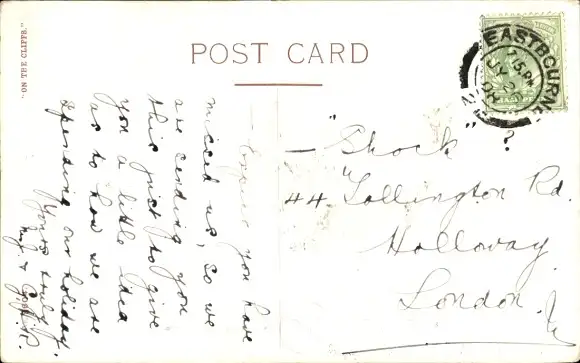 "ON THE CLIFFS."
POST CARD
EASTBOURNE
JY 2
08
Expect you have
missed us, so we
are sending you
this just to give
you a little idea
as to how we are
spending our holiday.
Yours truly
"Shock" ?
44 Tollington Rd.
Holloway
London. N.